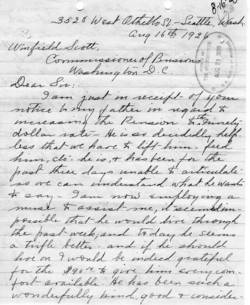 3520 West Othello St - Seattle, Wash.
Aug 16th 1926
Winfield Scott,
Commissioner of Pensions
Washington D.C.
Dear Sir:
I am just in receipt of your
notice to my father in regard to
increasing the Pension to Ninety
dollar rate - He is so decidedly help
less that we have to lift him, feed
him, etc. he is, & has been for the
past three days unable to articulate
so we can understand what he wants
to say. I am now employing a
nurse to assist me, it seemed im
possible that he would live through
the past week, and today he seems
a trifle better - and if he should
live on I would be indeed grateful
for the $90.00 to give him every com
fort available. He has been such a
wonderfully kind, good & conside